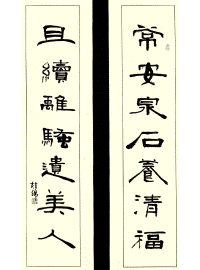 常安泉石養清福
且續離騷遺美人